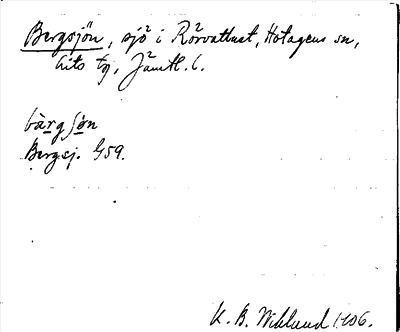 Bergsjön, sjö i Rörvattnet, Hotagens sn,
Lits tg, Jämtl. l.
bàrgʃøn
Bergsj. G59.
K. B. Wiklund 1906.